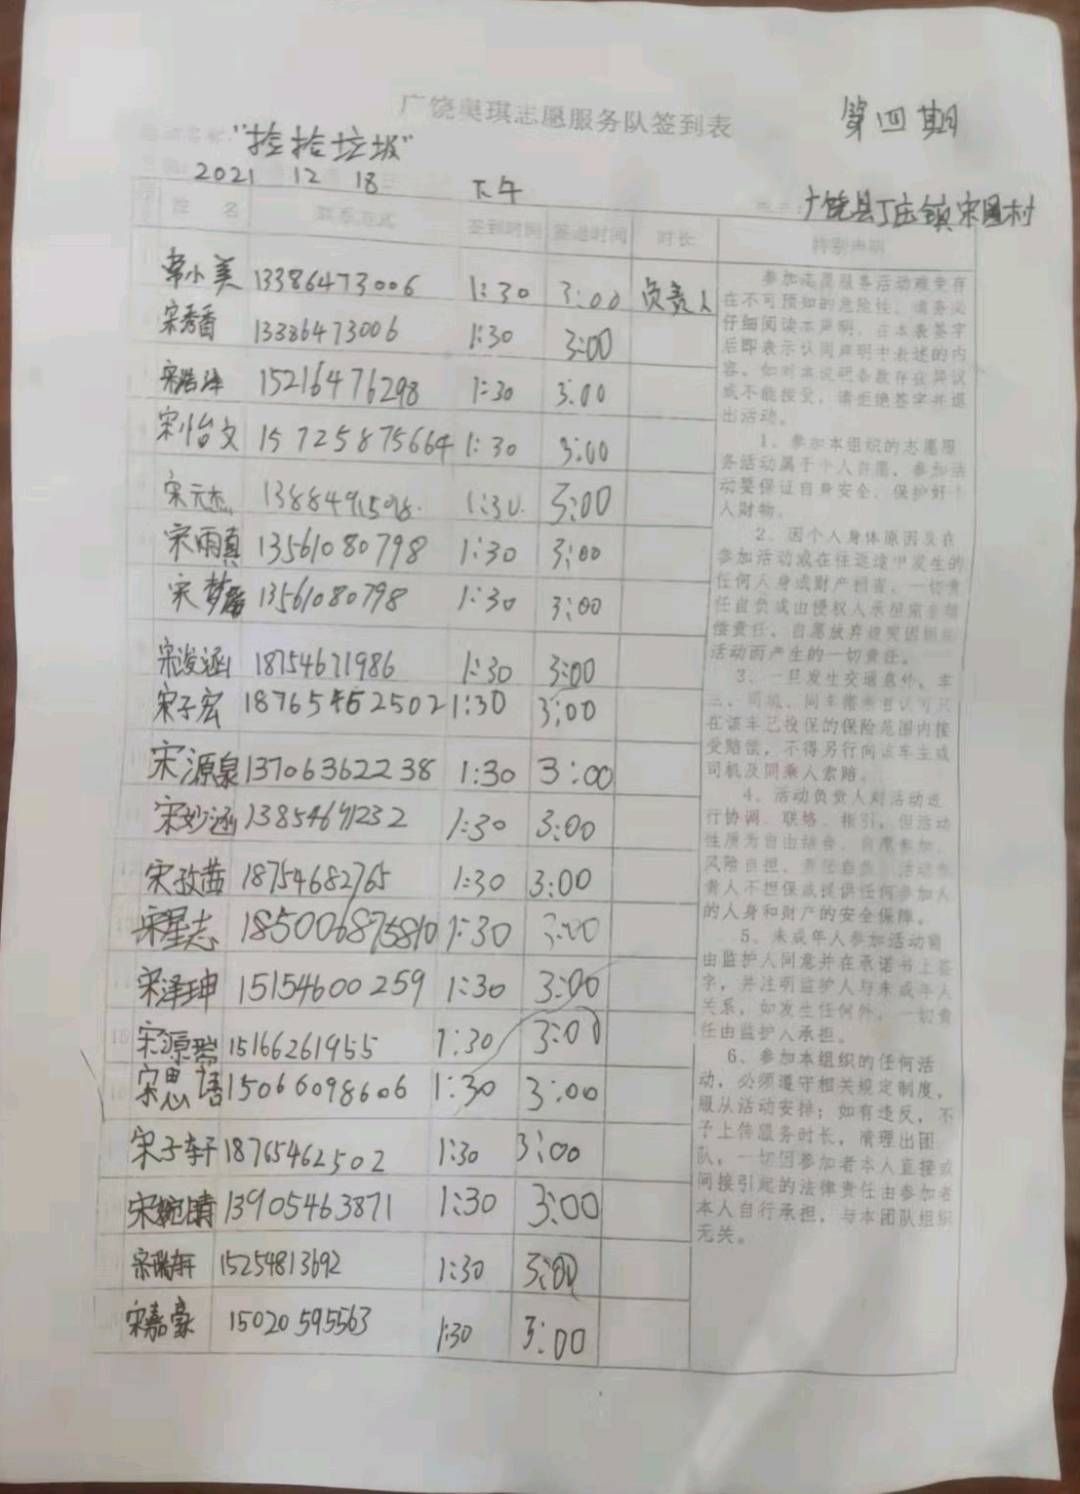 广饶奥琪志愿服务队签到表
第四期
"捡拾垃圾"
2021 12 18 下午
广饶县丁庄镇宋圈村
姓名 联系方式 签到时间 签退时间 时长 特别声明
常小美 13386473006 1:30 3:00 负责人
宋秀香 13386473006 1:30 3:00
宋浩泽 15216476298 1:30 3:00
宋怡文 15725875664 1:30 3:00
宋元杰 1:30 3:00
宋雨真 13561080798 1:30 3:00
宋梦 13561080798 1:30 3:00
宋浚涵 18754671986 1:30 3:00
宋子宏 1:30 3:00
宋源泉 13706362238 1:30 3:00
宋妙涵 1:30 3:00
宋孜茜 18754682765 1:30 3:00
宋星志 185006875810 1:30 3:00
宋泽珅 15154600259 1:30 3:00
宋源瑞 15166261955 1:30 3:00
宋思语 15066098606 1:30 3:00
宋子轩 18765462502 1:30 3:00
宋婉晴 13905463871 1:30 3:00
宋瑞轩 15254813692 1:30 3:00
宋嘉豪 15020595563 1:30 3:00
参加志愿服务活动难免存
在不可预知的危险性，请务必
仔细阅读本声明，在本表签字
后即表示认同声明中表述的内
容。如对本说明条款存在异议
或不能接受，请拒绝签字并退
出活动。
1、参加本组织的志愿服
务活动属于个人自愿，参加活
动要保证自身安全、保护好个
人财物。
2、因个人身体原因及在
参加活动或在往返途中发生的
任何人身或财产损害，一切责
任自负或由侵权人承担
偿责任，自愿放弃追究因
活动而产生的一切责任。
3、一旦发生交通意外，车
主、司机、同车
在该车已投保的保险范围内接
受赔偿，不得另行向该车主或
司机及同乘人索赔。
4、活动负责人对活动进
行协调、联络、指引，但活动
性质为自由结合、自愿参加、
风险自担、责任自负，活动负
责人不担保或提供任何参加人
的人身和财产的安全保障。
5、未成年人参加活动需
由监护人同意并在承诺书上签
字，并注明监护人与未成年人
关系，如发生任何意外，一切责
任由监护人承担。
6、参加本组织的任何活
动，必须遵守相关规定制度，
服从活动安排；如有违反，不
予上传服务时长，清理出团
队，一切因参加者本人直接或
间接引起的法律责任由参加者
本人自行承担，与本团队组织
无关。